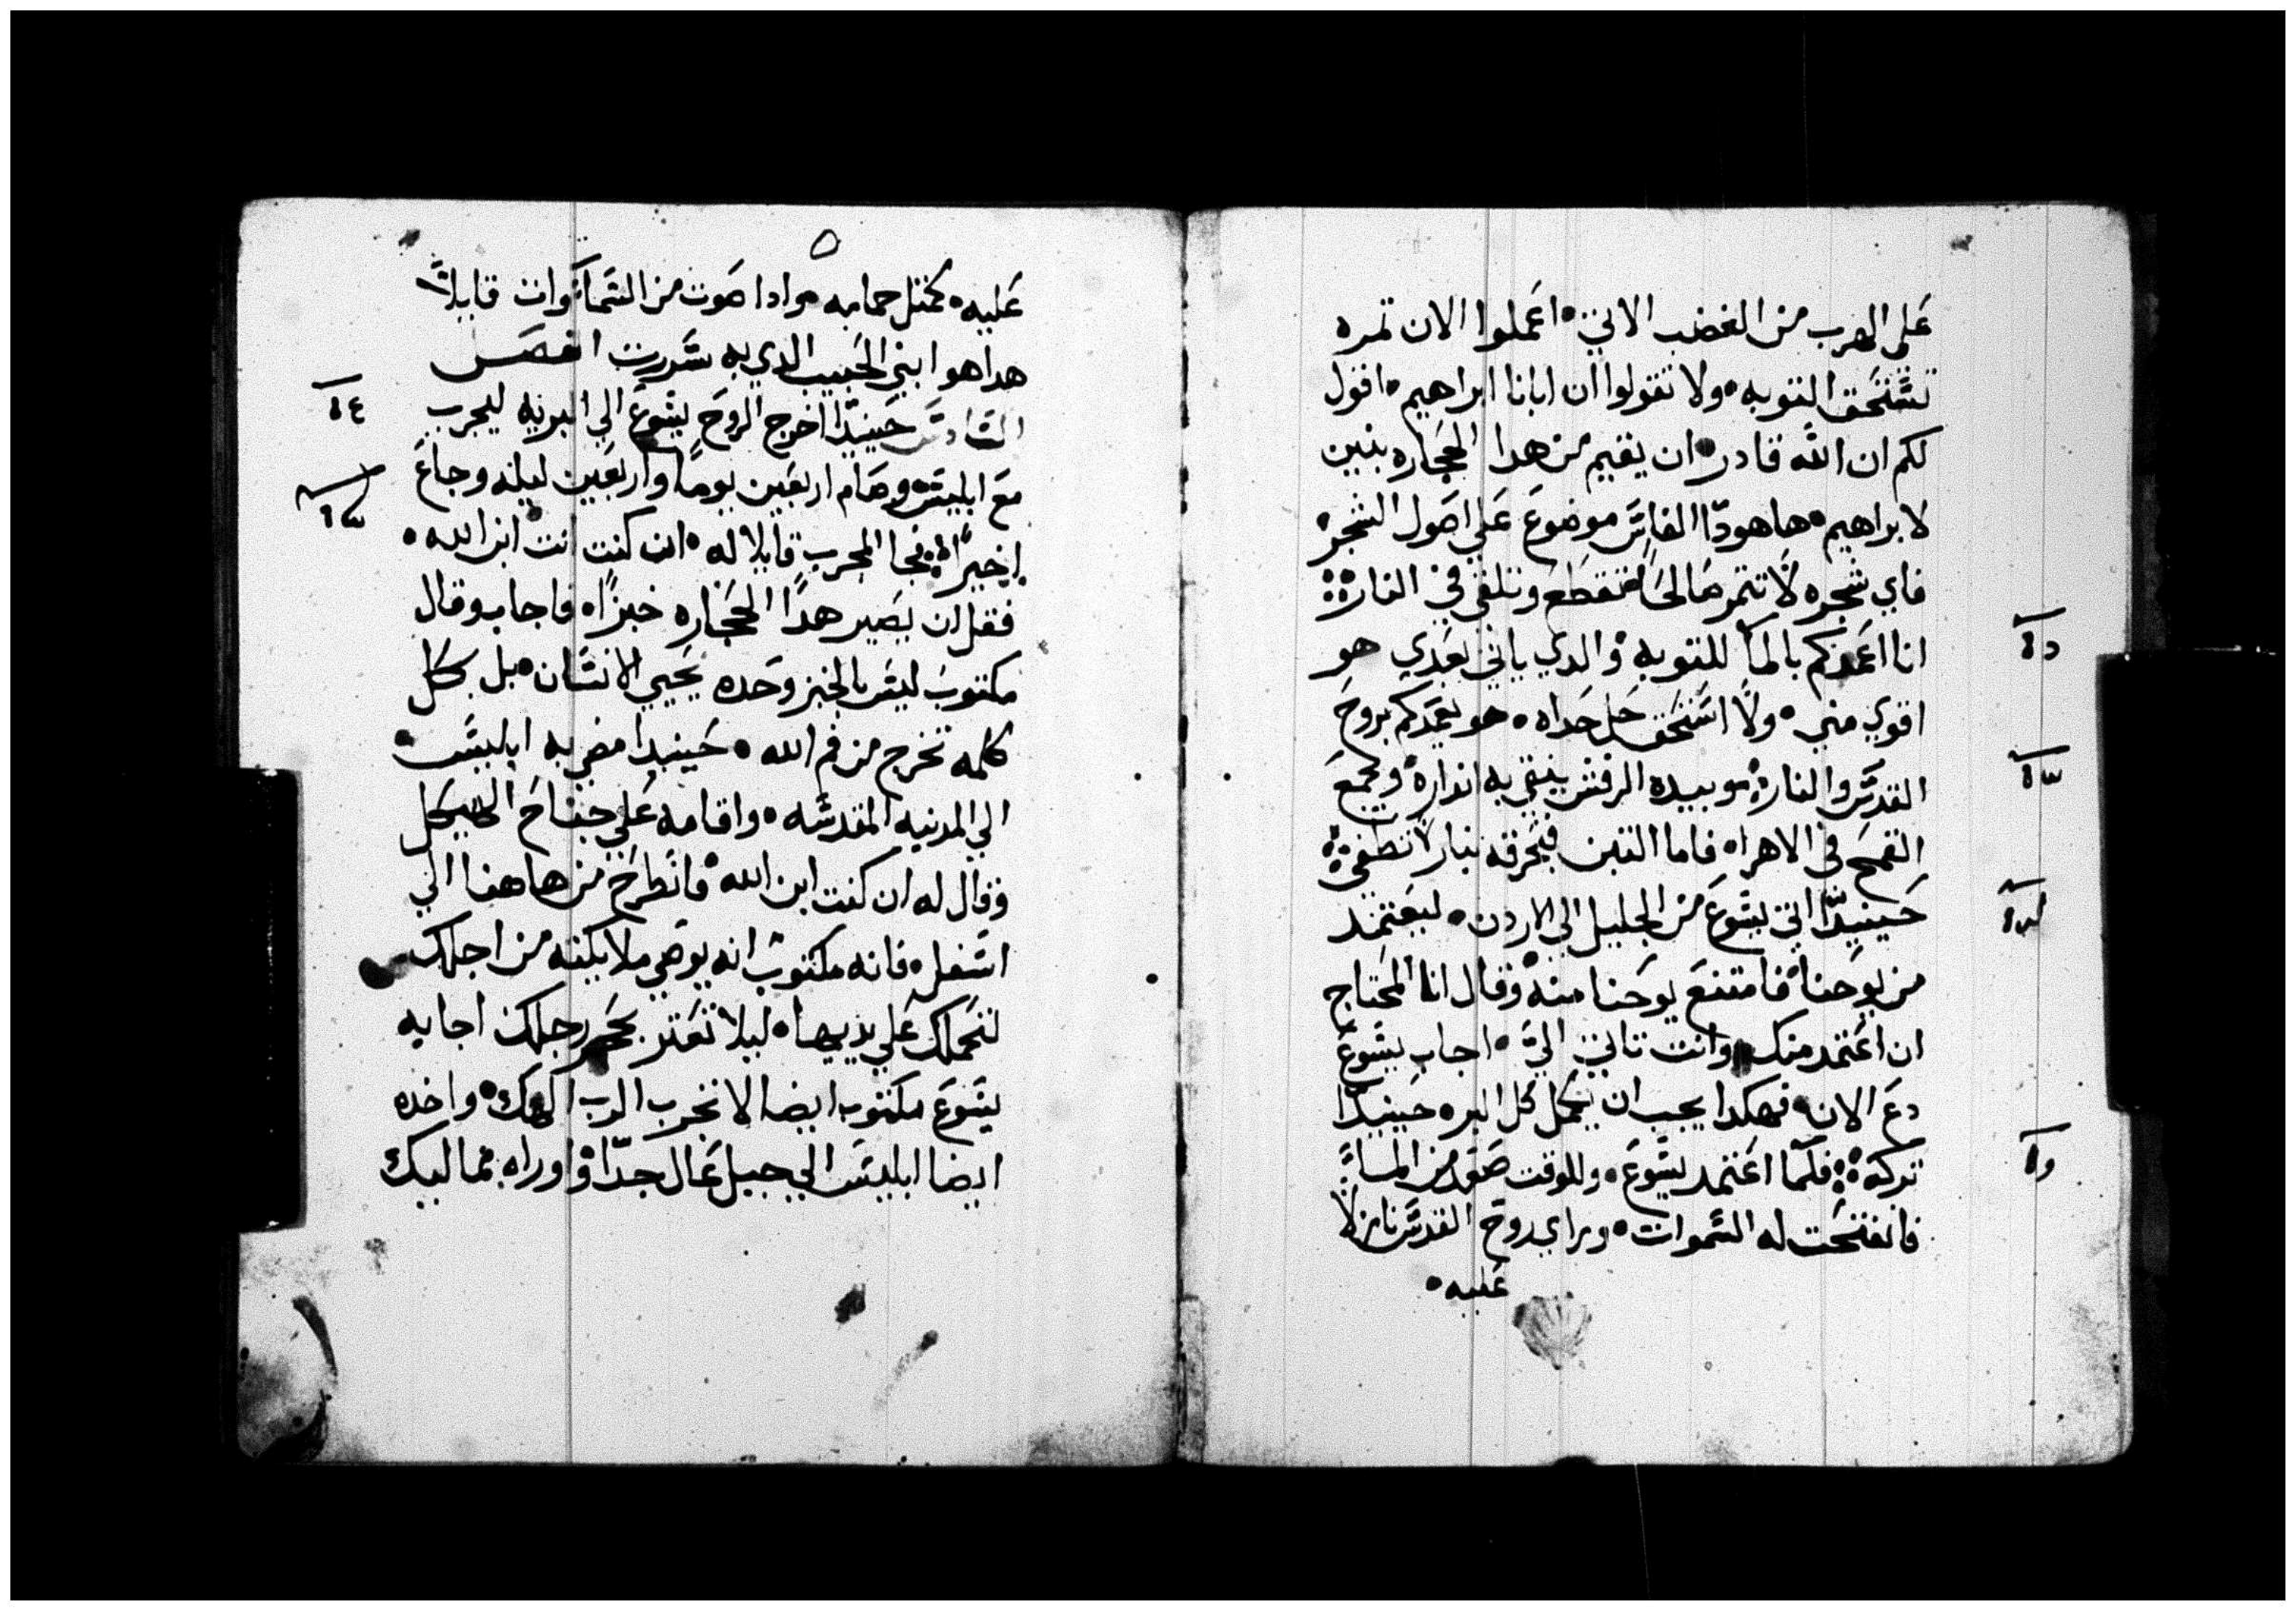 علي الهرب من الغضب الاتي ۰ اعملوا الان تمره
تستحق التوبه ۰ ولا تقولوا ان ابانا ابراهيم ۰ اقول
لكم ان الله قادر ۰ ان يقيم من هدا الحجاره بنين
لابراهيم ۰ هاهودا الفاس موضوع علي اصول الشجر ۰
فاي شجره لا تتمر صالحا تقطع وتلقي في النار
انا اعمدكم بالما للتوبه والدي ياتي بعدي هو
اقوي مني ۰ ولا استحق حل حداه ۰ هو يعمدكم بروح
القدس والنار ۰ وبيده الرفش ينقي به انداره ويجمع
القمح في الاهرا ۰ فاما التبن فيحرقه بنار لا تطفي
حينيدا اتي يسوع من الجليل الي الاردن ۰ ليعتمد
من يوحنا فامتنع يوحنا منه وقال انا المحتاج
ان اعتمد منك وانت تاتي الي ۰ اجاب يسوع
دع الان ۰ فهكدا يجب ان يكمل كل البر ۰ حينيدا
تركه فلما اعتمد يسوع ۰ وللوقت صعد من الما
فانفتحت له السموات ۰ وراي روح القدس نازلا
عليه ۰
عليه ۰ كمتل حمامه ۰ وادا صوت من السماوات قايلا
هدا هو ابني الحبيب الدي به سررت الفصل
السادس حينيدا اخرج الروح يسوع الي البريه ليجرب
مع ابليس ۰ وصام اربعين يوما واربعين ليله وجاع
اخيرا ۰ فجا المجرب قايلا له ۰ ان كنت انت ابن الله ۰
فقل ان يصير هدا الحجاره خبزا ۰ فاجاب وقال
مكتوب ليس بالخبز وحده يحيي الانسان ۰ بل بكل
كلمه تخرج من فم الله ۰ حينيدا مضي به ابليس ۰
الي المدنيه المقدسه ۰ واقامه علي جناح الهيكل
وقال له ان كنت ابن الله فانطرح من هاهنا الي
اسفل ۰ فانه مكتوب انه يوصي ملايكته من اجلك
لتحملك علي يديها ۰ ليلا تعتر بحجر رجلك اجابه
يسوع مكتوب ايضا لا تجرب الرب الهك ۰ واخده
ايضا ابليس الي جبل عال جدا واوراه ممالك